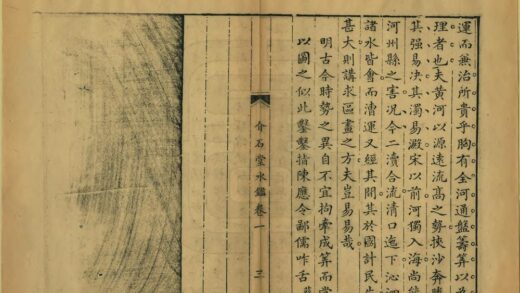 運而無治所貴乎胸有全河通盤籌筭以
理者也夫黃河以源遠流高之勢挾沙奔
其强易决其濁易澱宋以前河獨入海尚能
河州縣之害况今二瀆合流清口迤下沁泗
諸水皆會而漕運又經其間其於國計民生
甚大則講求區畫之方夫豈易易哉
明古今時勢之異自不宜拘牽成筭而當
以圖之似此鑿鑿指陳應令鄙儒咋舌
介石堂水鑑卷一 三